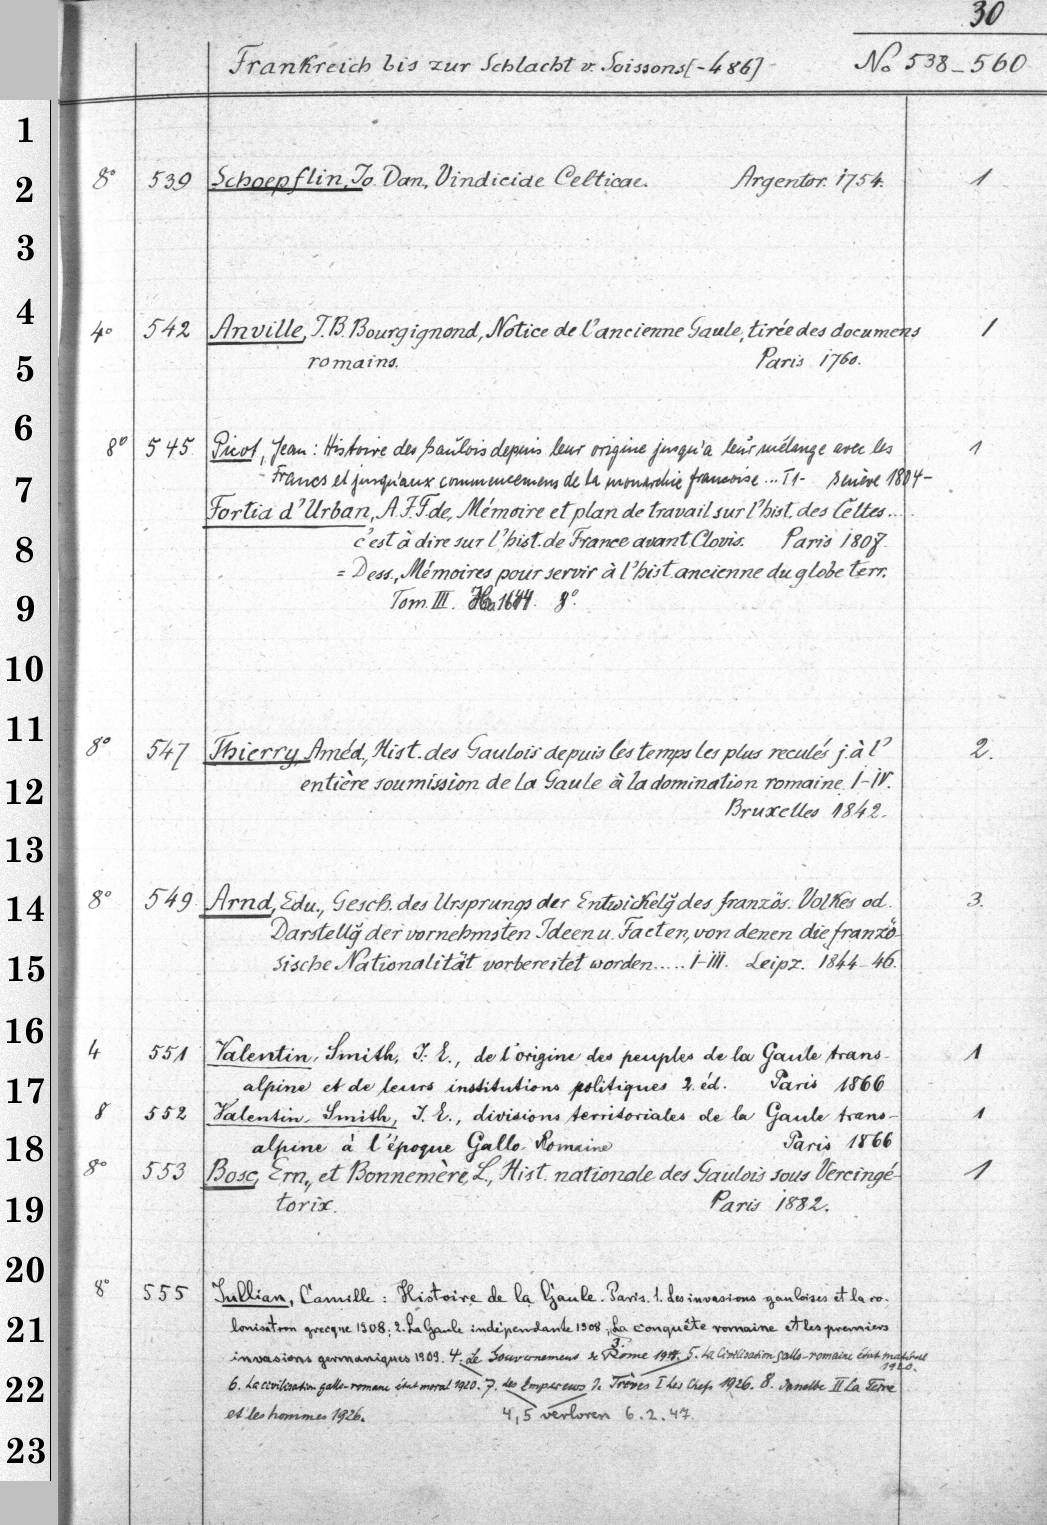 30
Frankreich bis zur Schlacht v. Soissons [-486] No 538-560
1
8° 539 Schoepflin, Jo. Dan., Vindicide Celticae. Argentor. 1754. 1
2
3
4
4° 542 Anville, J.B. Bourgignond, Notice de l'ancienne Gaule, tirée des documens 1
romains. Paris 1760.
5
6
8° 545 Picot, Jean: Histoire des Gaulois depuis leur origine jusqu'a leur mélange avec les 1
Francs et jusqu'aux commencemens de la monarchie francoise ... T1- Genève 1804-
7
Fortia d'Urban, A.F.F. de, Mémoire et plan de travail sur l'hist. des Celtes....
c'est à dire sur l'hist. de France avant Clovis. Paris 1807.
8
= Dess., Mémoires pour servir à l'hist. ancienne du globe terr.
Tom. III. Ha 1644. 8°.
9
10
11
8° 547 Thierry, Améd., Hist. des Gaulois depuis les temps les plus reculés j. à l' 2.
entière soumission de la Gaule à la domination romaine. I-IV.
12
Bruxelles 1842.
13
14
8° 549 Arnd, Edu., Gesch. des Ursprungs der Entwickelg des französ. Volkes od. 3.
Darstellg der vornehmsten Ideen u. Facten, von denen die franzö-
15
sische Nationalität vorbereitet worden..... I-III. Leipz. 1844-46.
16
4 551 Valentin-Smith, J.-E., de l'origine des peuples de la Gaule trans- 1
17
alpine et de leurs institutions politiques 2. éd. Paris 1866
8 552 Valentin-Smith, J. E., divisions territoriales de la Gaule trans- 1
18
alpine à l'époque Gallo-Romaine Paris 1866
8° 553 Bosc, Ern., et Bonnemère, L., Hist. nationale des Gaulois sous Vercingé- 1
19
torix. Paris 1882.
20
8° 555 Jullian, Camille: Histoire de la Gaule. Paris. 1. Les invasions gauloises et la co-
21
lonisation grecque 1908; 2. La Gaule indépendante 1908; La conquête romaine et les premiers
3.
invasions germaniques 1909. 4. Le Gouvernement de Rome 1914. 5. La Civilisation gallo-romaine état matériel
1920.
22
6. La civilisation gallo-romaine état moral 1920. 7. Les Empereurs de Trèves I Les Chefs 1926. 8. II La Terre
et les hommes 1926. 4,5 verloren 6.2.47.
23